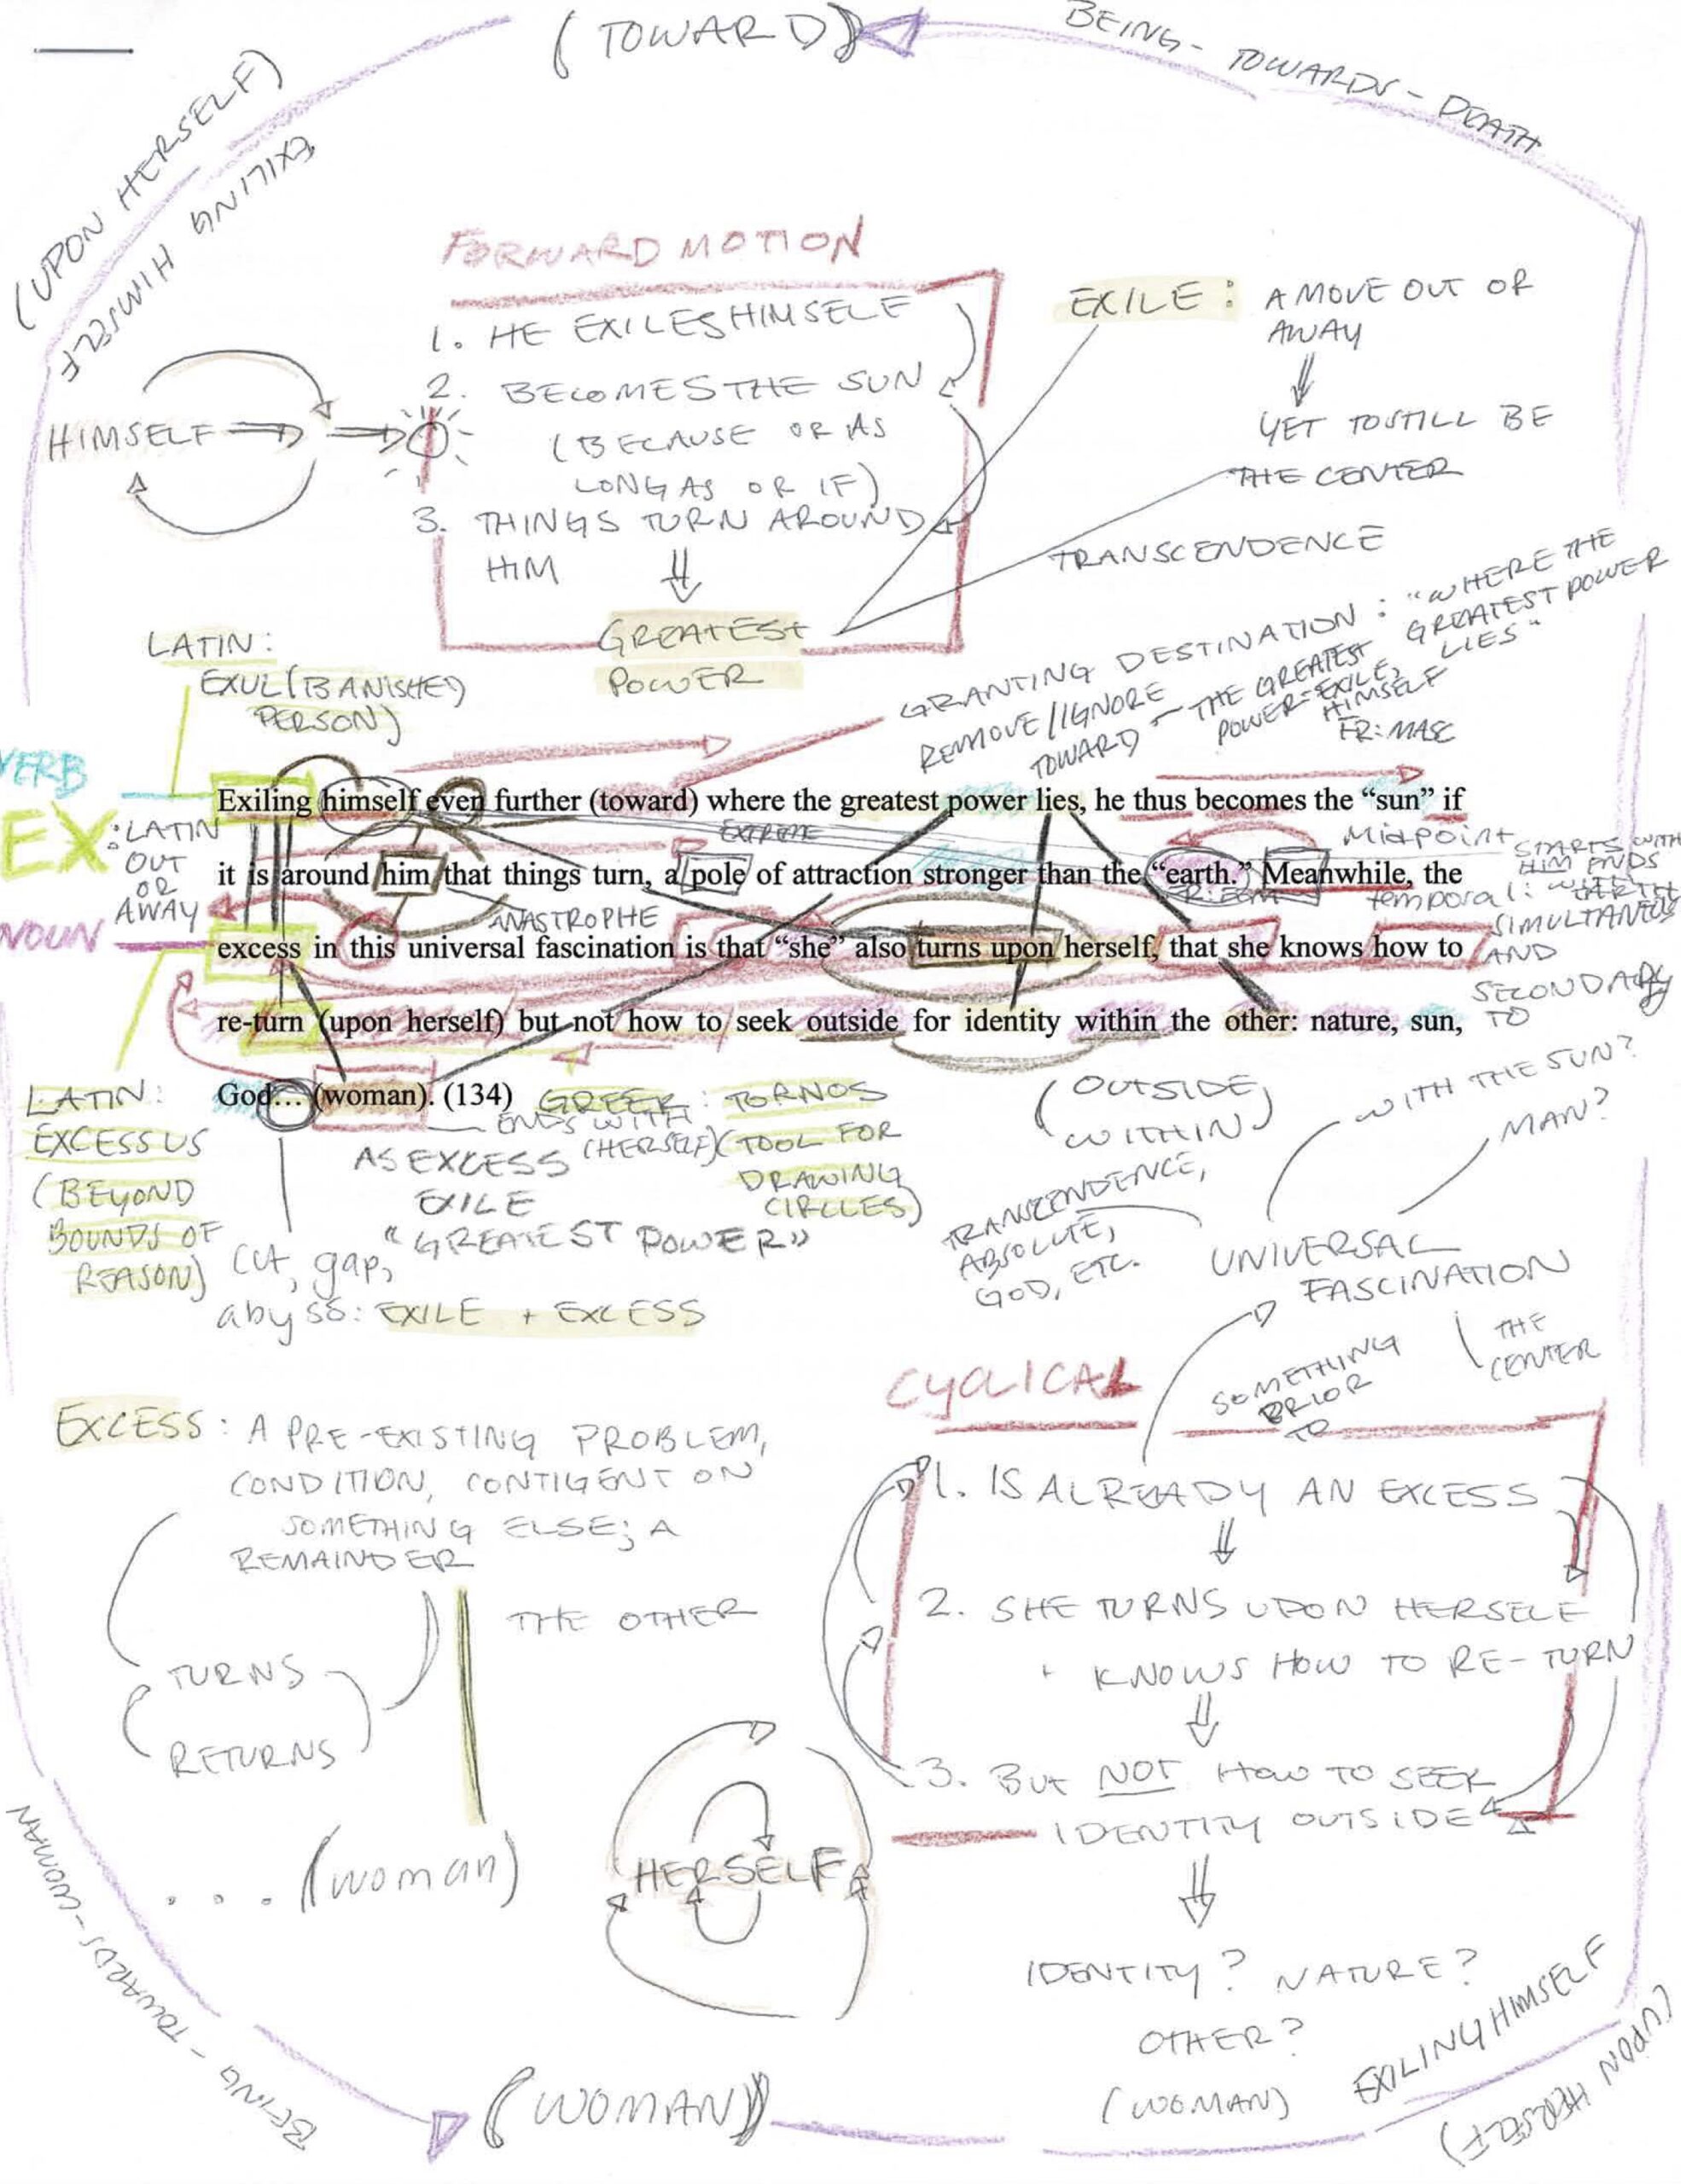 (TOWARD)
BEING-TOWARDS-DEATH
(UPON HERSELF)
EXILING HIMSELF
FORWARD MOTION
1. HE EXILES HIMSELF
2. BECOMES THE SUN
(BECAUSE OR AS
LONG AS OR IF)
3. THINGS TURN AROUND
HIM
GREATEST
POWER
HIMSELF
EXILE: A MOVE OUT OR
AWAY
YET TO STILL BE
THE CENTER
TRANSCENDENCE
LATIN:
EXUL (BANISHED
PERSON)
GRANTING DESTINATION: "WHERE THE
GREATEST POWER
LIES"
REMOVE/IGNORE
TOWARD – THE GREATEST
POWER=EXILE,
HIMSELF
FR: MASC
VERB
EX: LATIN
OUT
OR
AWAY
NOUN
Exiling himself even further (toward) where the greatest power lies, he thus becomes the “sun” if
EXTREME
Midpoint
STARTS WITH
HIM ENDS
WITH
EARTH
it is around him that things turn, a pole of attraction stronger than the “earth.” Meanwhile, the
FR: FEM
temporal:
SIMULTANEOUS
AND
SECONDARY
TO
ANASTROPHE
excess in this universal fascination is that “she” also turns upon herself, that she knows how to
re-turn (upon herself) but not how to seek outside for identity within the other: nature, sun,
God… (woman). (134)
GREEK: TORNOS
(TOOL FOR
DRAWING
CIRCLES)
ENDS WITH
(HERSELF)
AS EXCESS
EXILE
"GREATEST POWER"
LATIN:
EXCESSUS
(BEYOND
BOUNDS OF
REASON)
cut, gap,
abyss: EXILE + EXCESS
(OUTSIDE
WITHIN)
TRANSCENDENCE,
ABSOLUTE,
GOD, ETC.
WITH THE SUN?
MAN?
UNIVERSAL
FASCINATION
THE
CENTER
CYCLICAL
SOMETHING
PRIOR
TO
1. IS ALREADY AN EXCESS
2. SHE TURNS UPON HERSELF
+ KNOWS HOW TO RE-TURN
3. BUT NOT HOW TO SEEK
IDENTITY OUTSIDE
IDENTITY? NATURE?
OTHER?
(WOMAN)
EXCESS: A PRE-EXISTING PROBLEM,
CONDITION, CONTIGENT ON
SOMETHING ELSE; A
REMAINDER
THE OTHER
TURNS
RETURNS
... (woman)
HERSELF
BEING-TOWARDS-WOMAN
(WOMAN)
EXILING HIMSELF
(UPON HERSELF)